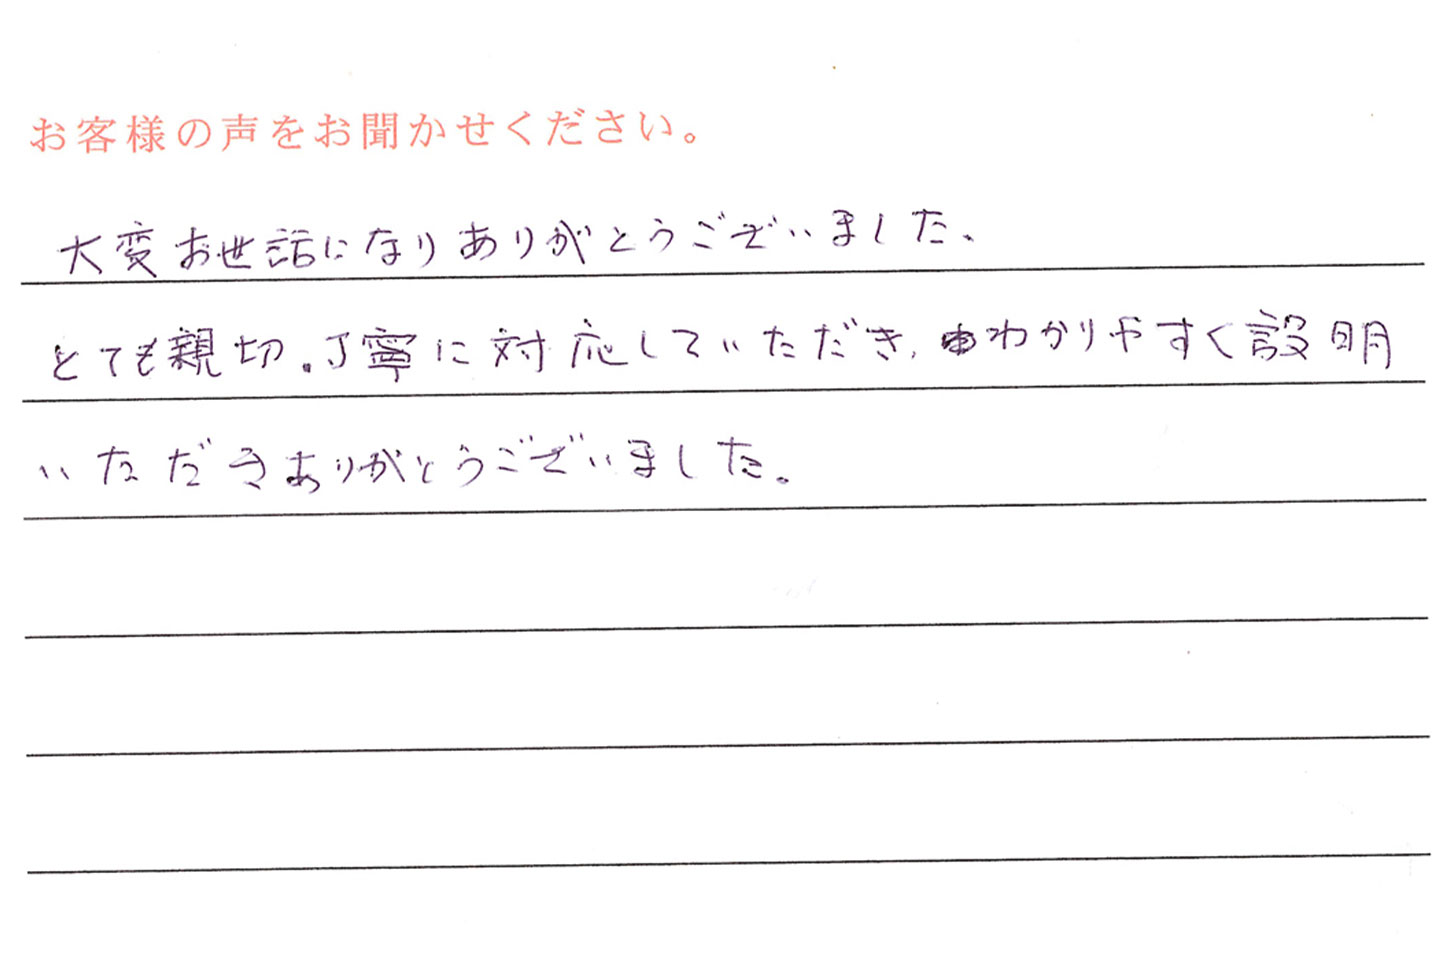 お客様の声をお聞かせください。
大変お世話になりありがとうございました、
とても親切。丁寧に対応していただき、わかりやすく設明
いただきありがとうございました。